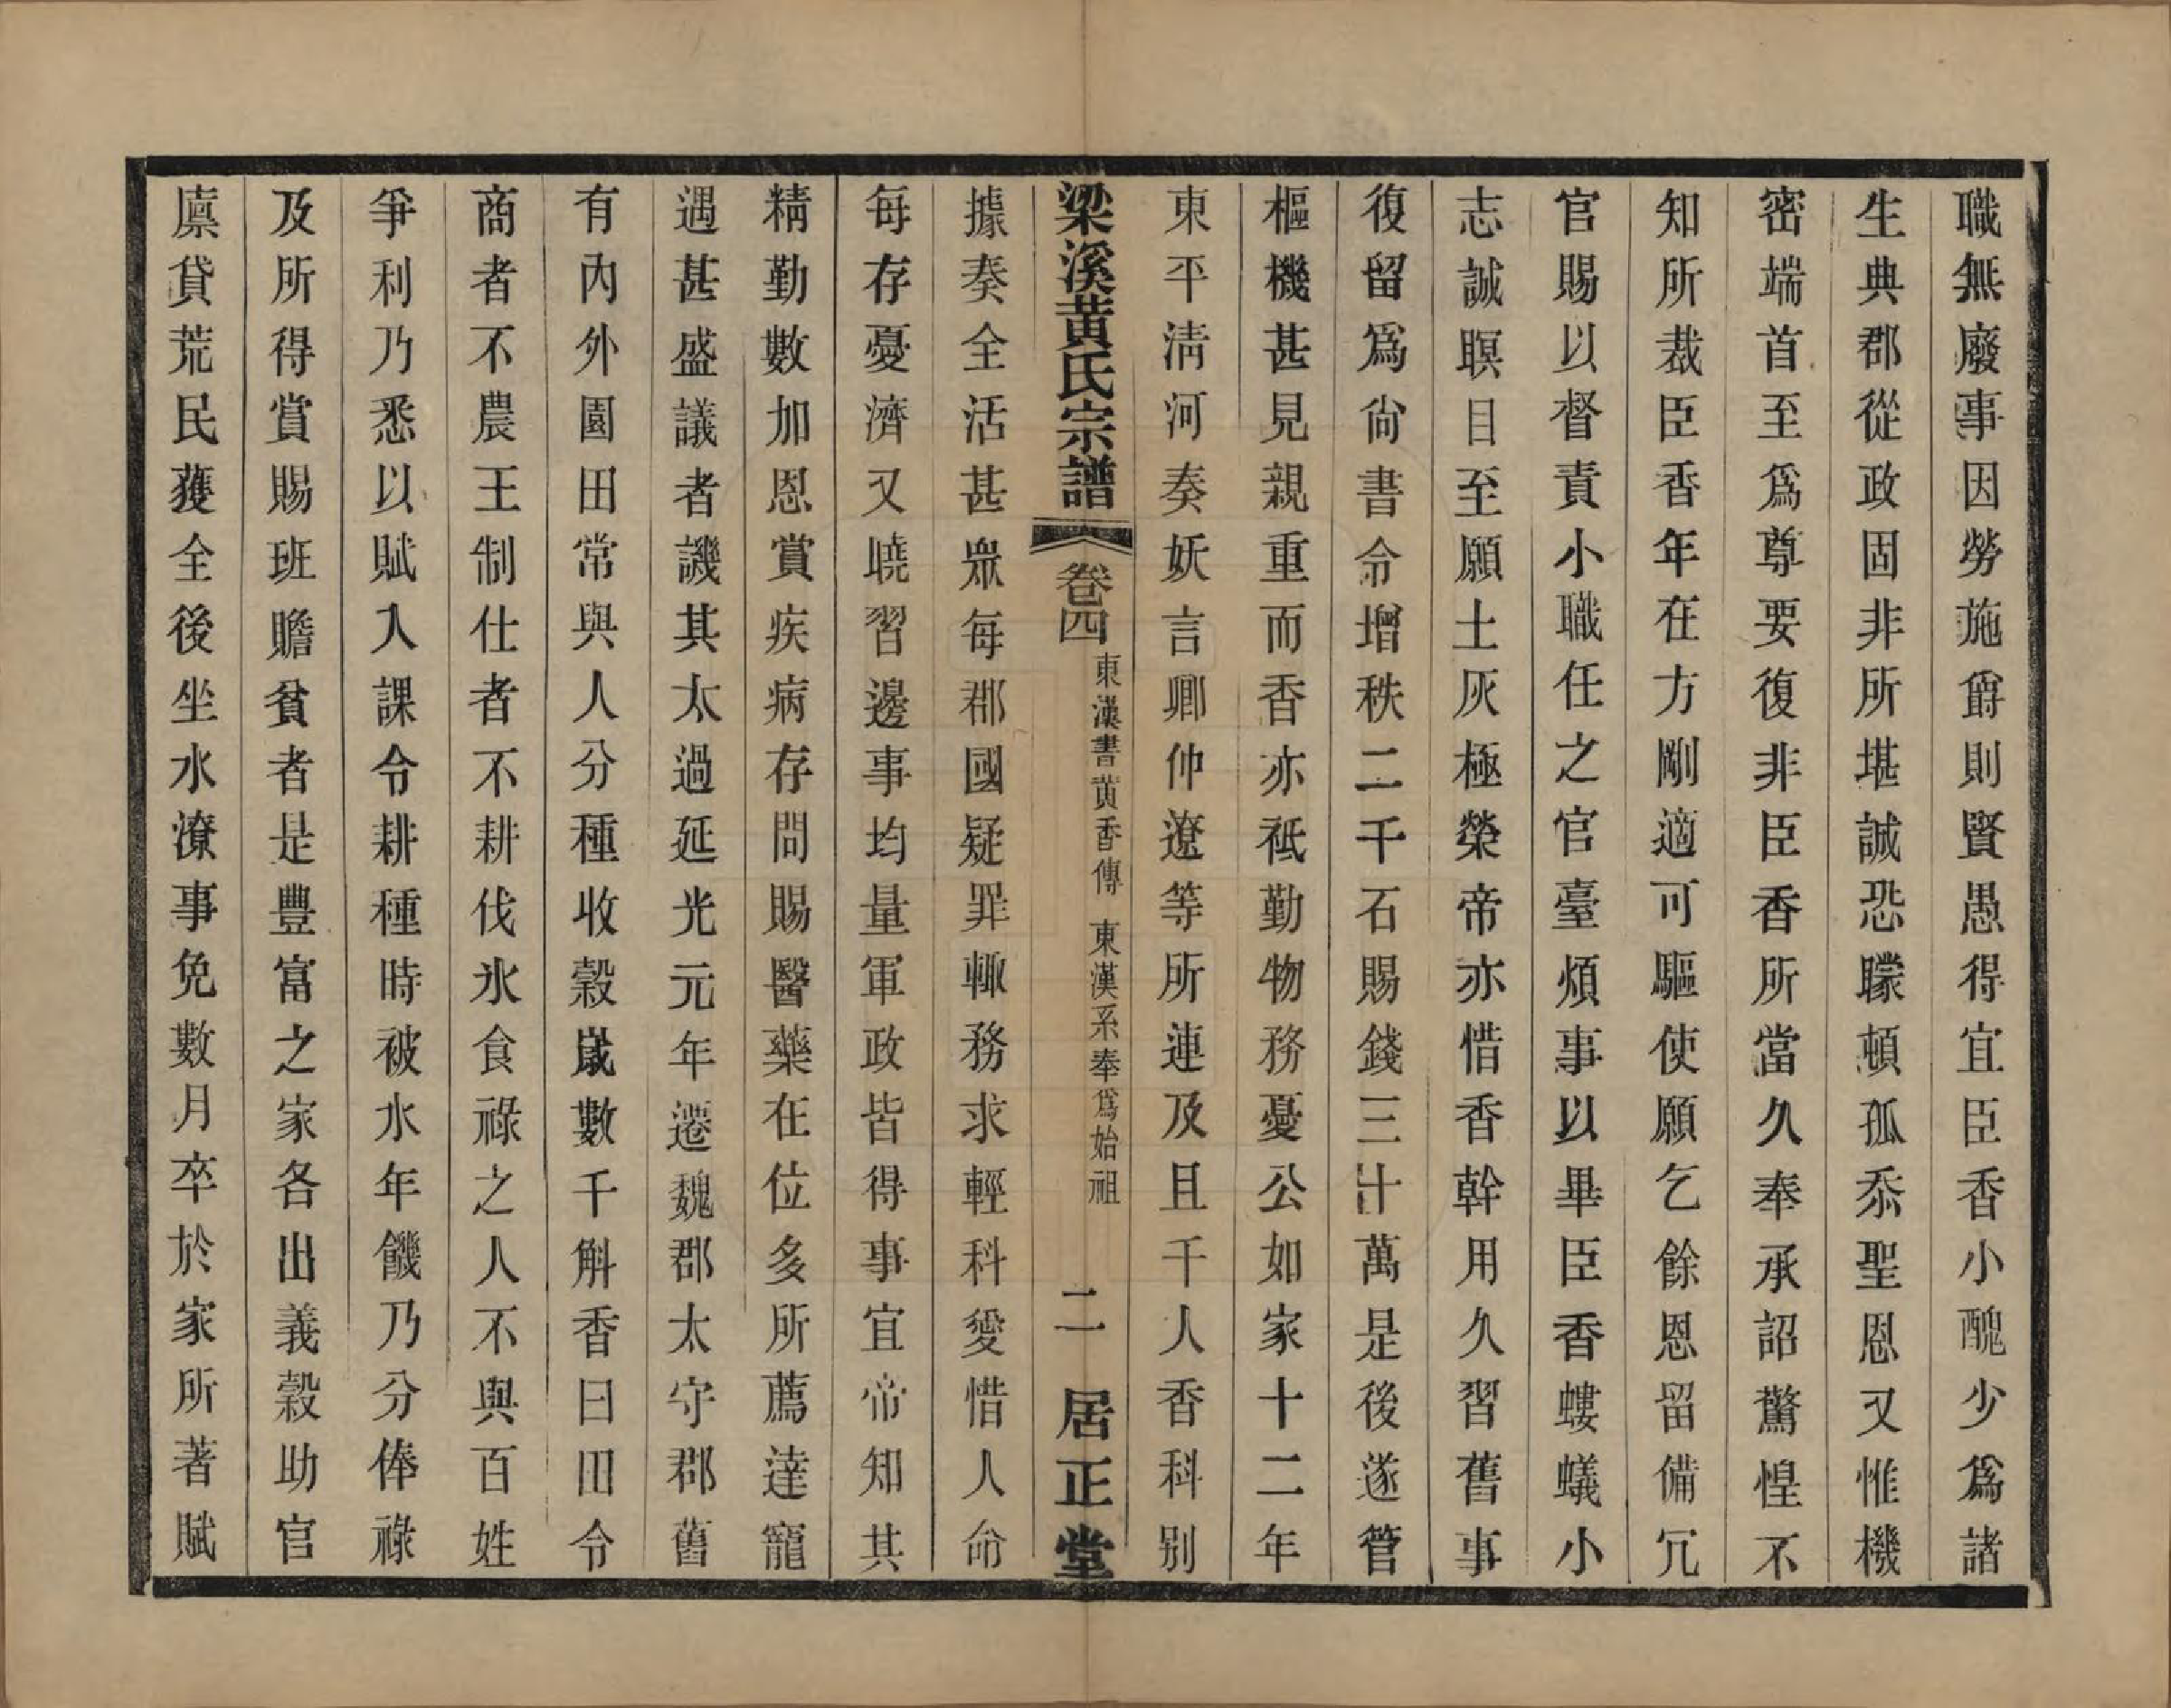 職無廢事因勞施爵則賢愚得宜臣香小醜少爲諸
生典郡從政固非所堪誠恐矇頓孤忝聖恩又惟機
密端首至爲尊要復非臣香所當久奉承詔驚惶不
知所裁臣香年在方剛適可驅使願乞餘恩留備冗
官賜以督責小職任之官臺煩事以畢臣香螻蟻小
志誠瞑目至願土灰極榮帝亦惜香幹用久習舊事
復留爲尙書令增秩二千石賜錢三十萬是後遂管
樞機甚見親重而香亦祗勤物務憂公如家十二年
東平淸河奏妖言卿仲遼等所連及且千人香科别
梁溪黃氏宗譜 卷四 東漢書黃香傳 東漢系奉爲始祖 二 居正堂
據奏全活甚眾每郡國疑罪輙務求輕科愛惜人命
每存憂濟又曉習邊事均量軍政皆得事宜帝知其
精勤數加恩賞疾病存問賜醫藥在位多所薦達寵
遇甚盛議者譏其太過延光元年遷魏郡太守郡舊
有內外園田常與人分種收穀嵗數千斛香曰田令
商者不農王制仕者不耕伐氷食祿之人不與百姓
爭利乃悉以賦入課令耕種時被水年饑乃分俸祿
及所得賞賜班贍貧者是豐富之家各出義穀助官
廪貸荒民獲全後坐水潦事免數月卒於家所著賦